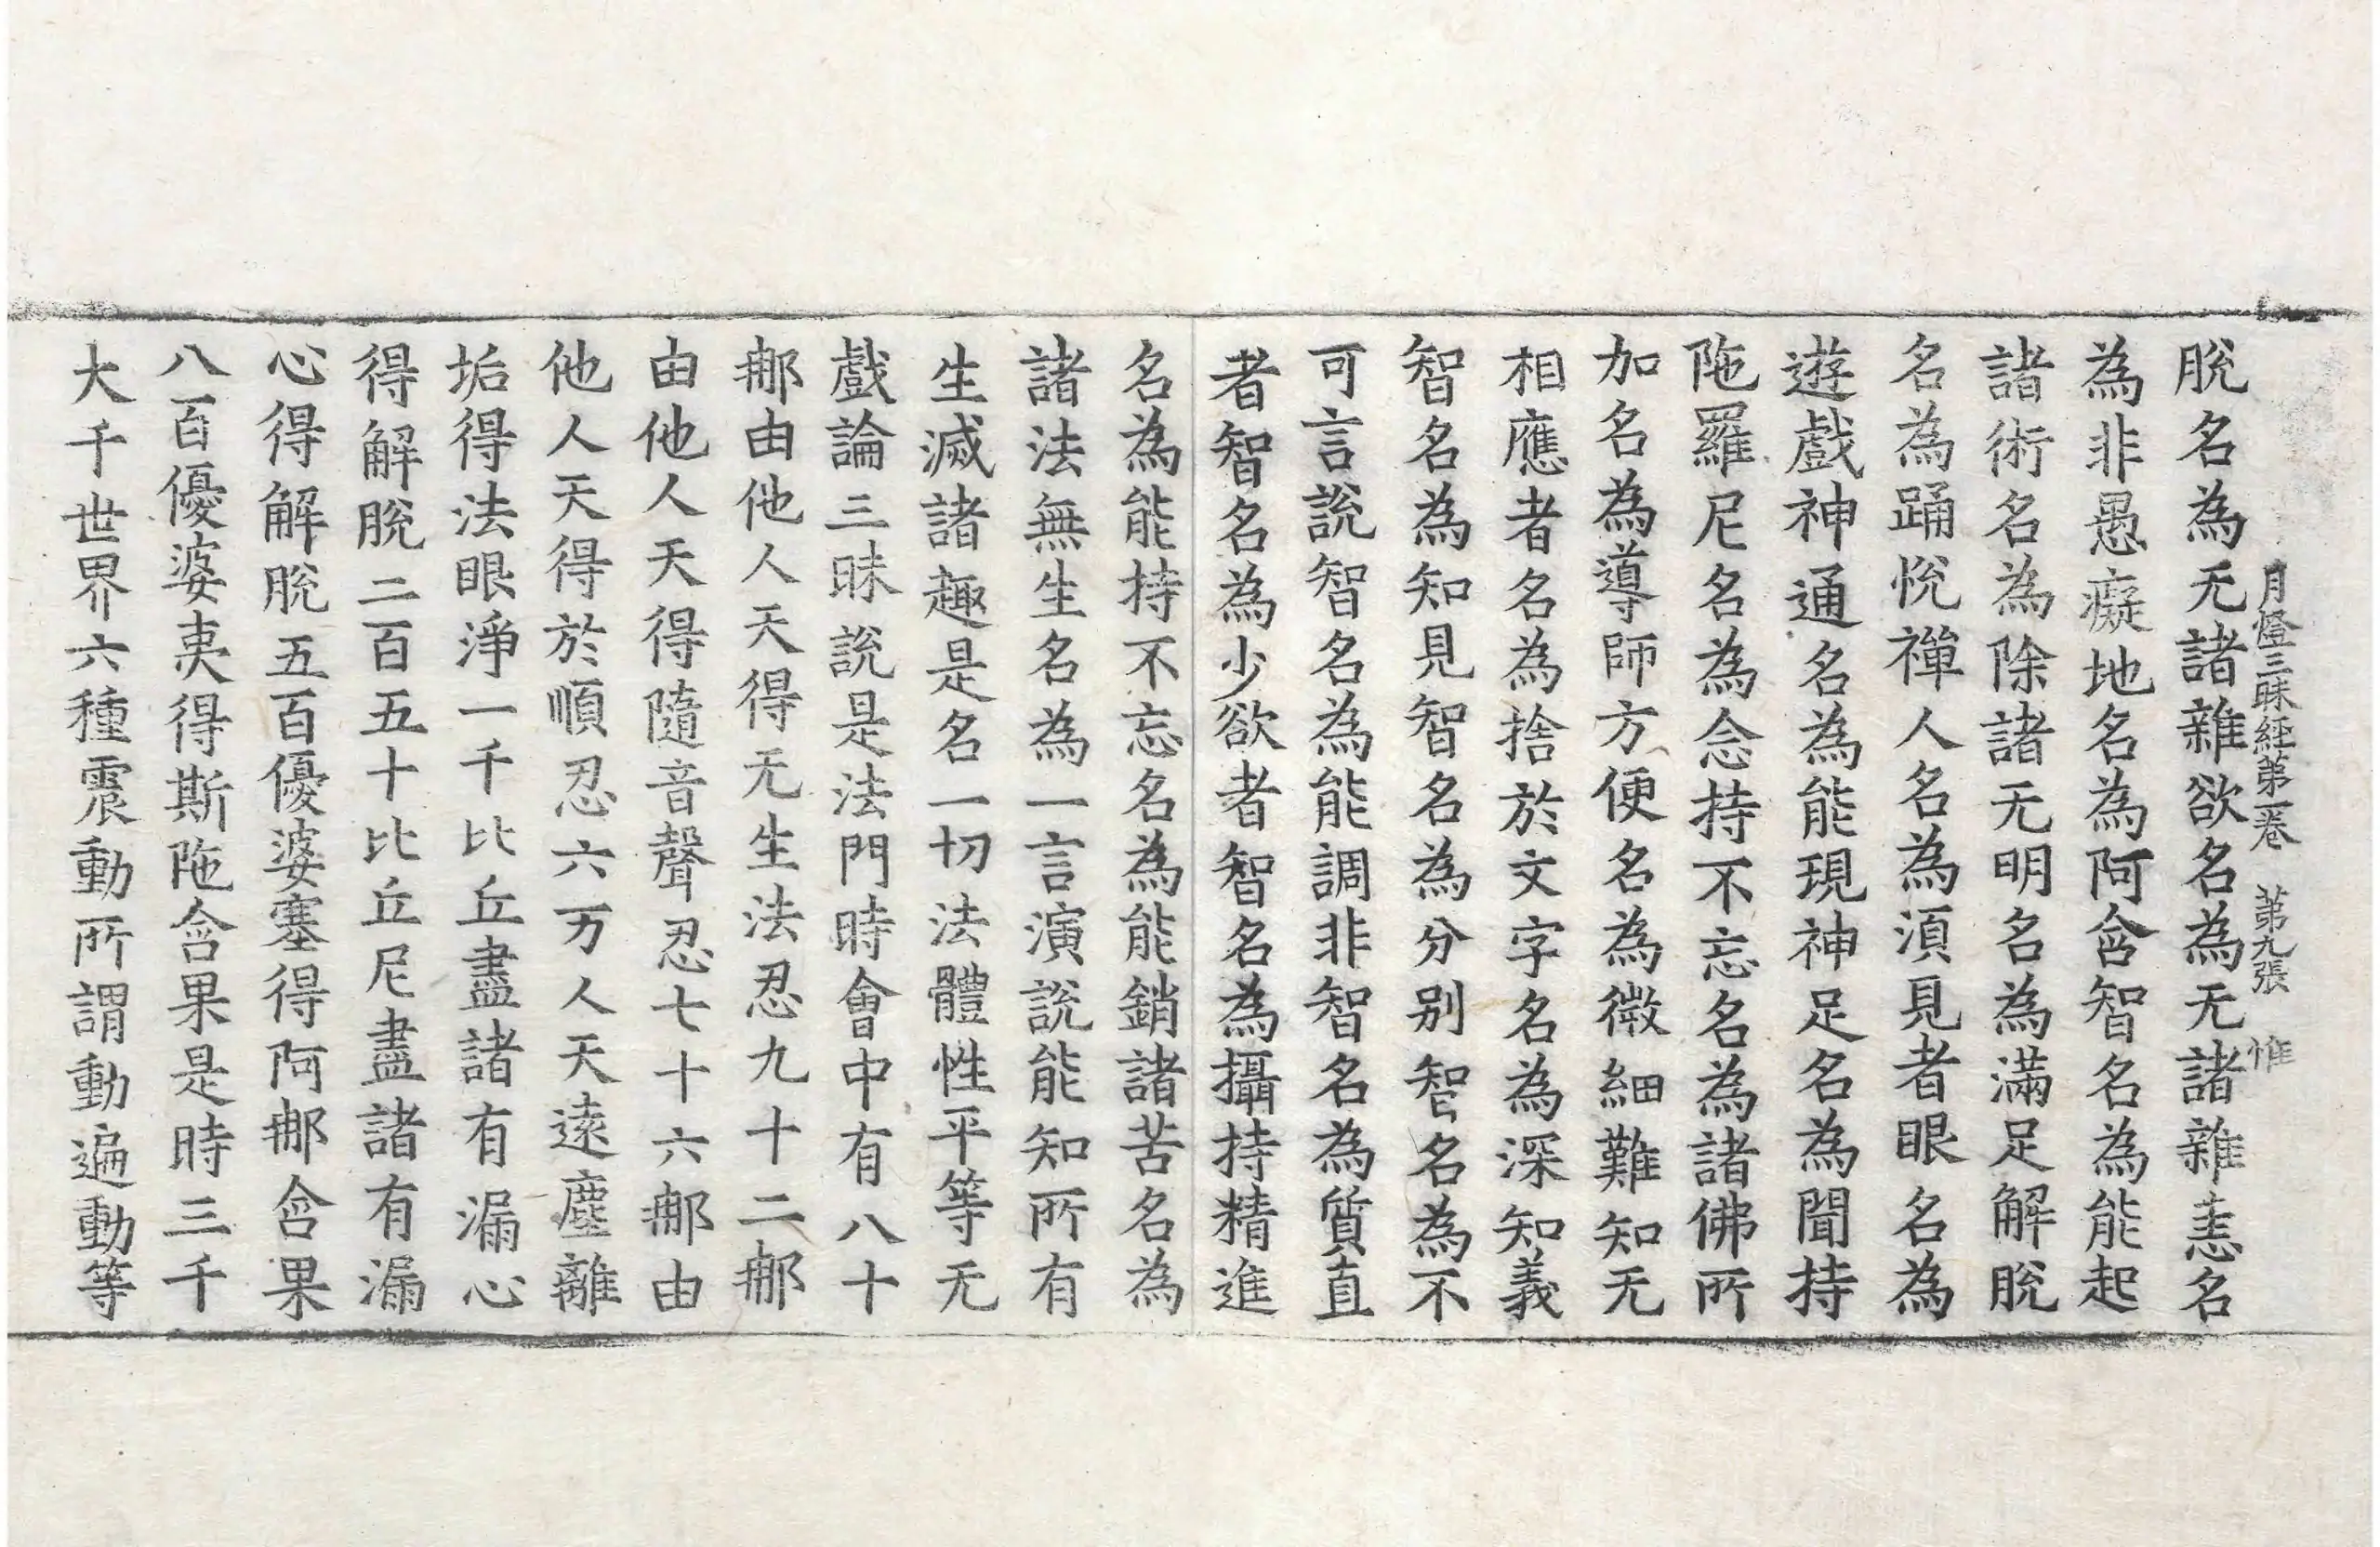 月燈三昧経苐一卷 苐九張 惟
脫名為无諸雜欲名為无諸雜恚名
為非愚癡地名為阿含智名為能起
諸術名為除諸无明名為滿足解脫
名為踊悅禪人名為湏見者眼名為
遊戲神通名為能現神足名為聞持
陁羅尼名為念持不忘名為諸佛所
加名為導師方便名為微細難知无
相應者名為捨於文字名為深知義
智名為知見智名為分别智名為不
可言說智名為能調非智名為質直
者智名為少欲者智名為攝持精進
名為能持不忘名為能銷諸苦名為
諸法無生名為一言演說能知所有
生滅諸趣是名一切法體性平等无
戲論三昧說是法門時會中有八十
那由他人天得无生法忍九十二那
由他人天得隨音聲忍七十六那由
他人天得於順忍六万人天遠塵離
垢得法眼淨一千比丘盡諸有漏心
得解脫二百五十比丘尼盡諸有漏
心得解脫五百優婆塞得阿那含果
八百優婆夷得斯陁含果是時三千
大千世界六種震動所謂動遍動等